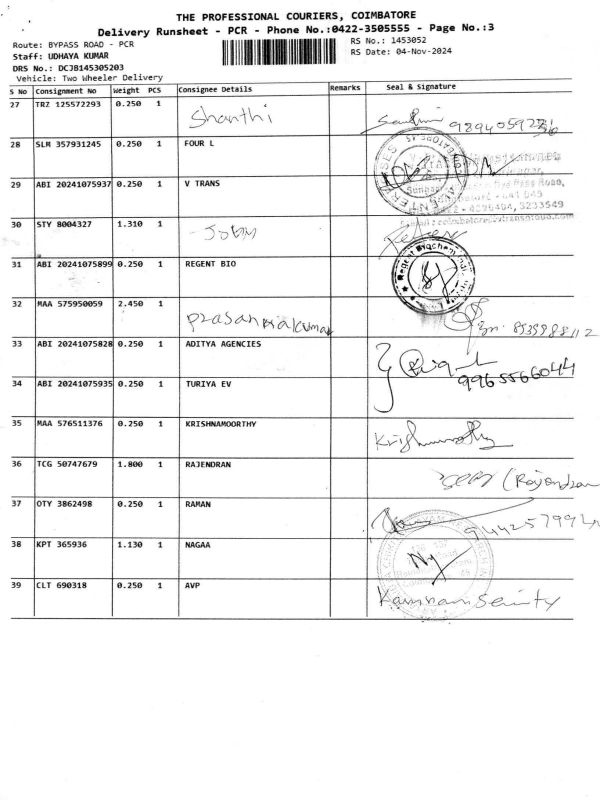 THE PROFESSIONAL COURIERS, COIMBATORE
Delivery Runsheet - PCR - Phone No.:0422-3505555 - Page No.:3
Route: BYPASS ROAD - PCR
RS No.: 1453052
Staff: UDHAYA KUMAR
RS Date: 04-Nov-2024
DRS No.: DCJB145305203
Vehicle: Two Wheeler Delivery
S No Consignment No Weight PCS Consignee Details Remarks Seal & Signature
27 TRZ 125572293 0.250 1 Shanthi
28 SLM 357931245 0.250 1 FOUR L
29 ABI 20241075937 0.250 1 V TRANS
30 STY 8004327 1.310 1
31 ABI 20241075899 0.250 1 REGENT BIO
32 MAA 575950059 2.450 1
33 ABI 20241075828 0.250 1 ADITYA AGENCIES
9965566044
34 ABI 20241075935 0.250 1 TURIYA EV
35 MAA 576511376 0.250 1 KRISHNAMOORTHY
36 TCG 50747679 1.800 1 RAJENDRAN
37 OTY 3862498 0.250 1 RAMAN
38 KPT 365936 1.130 1 NAGAA
39 CLT 690318 0.250 1 AVP